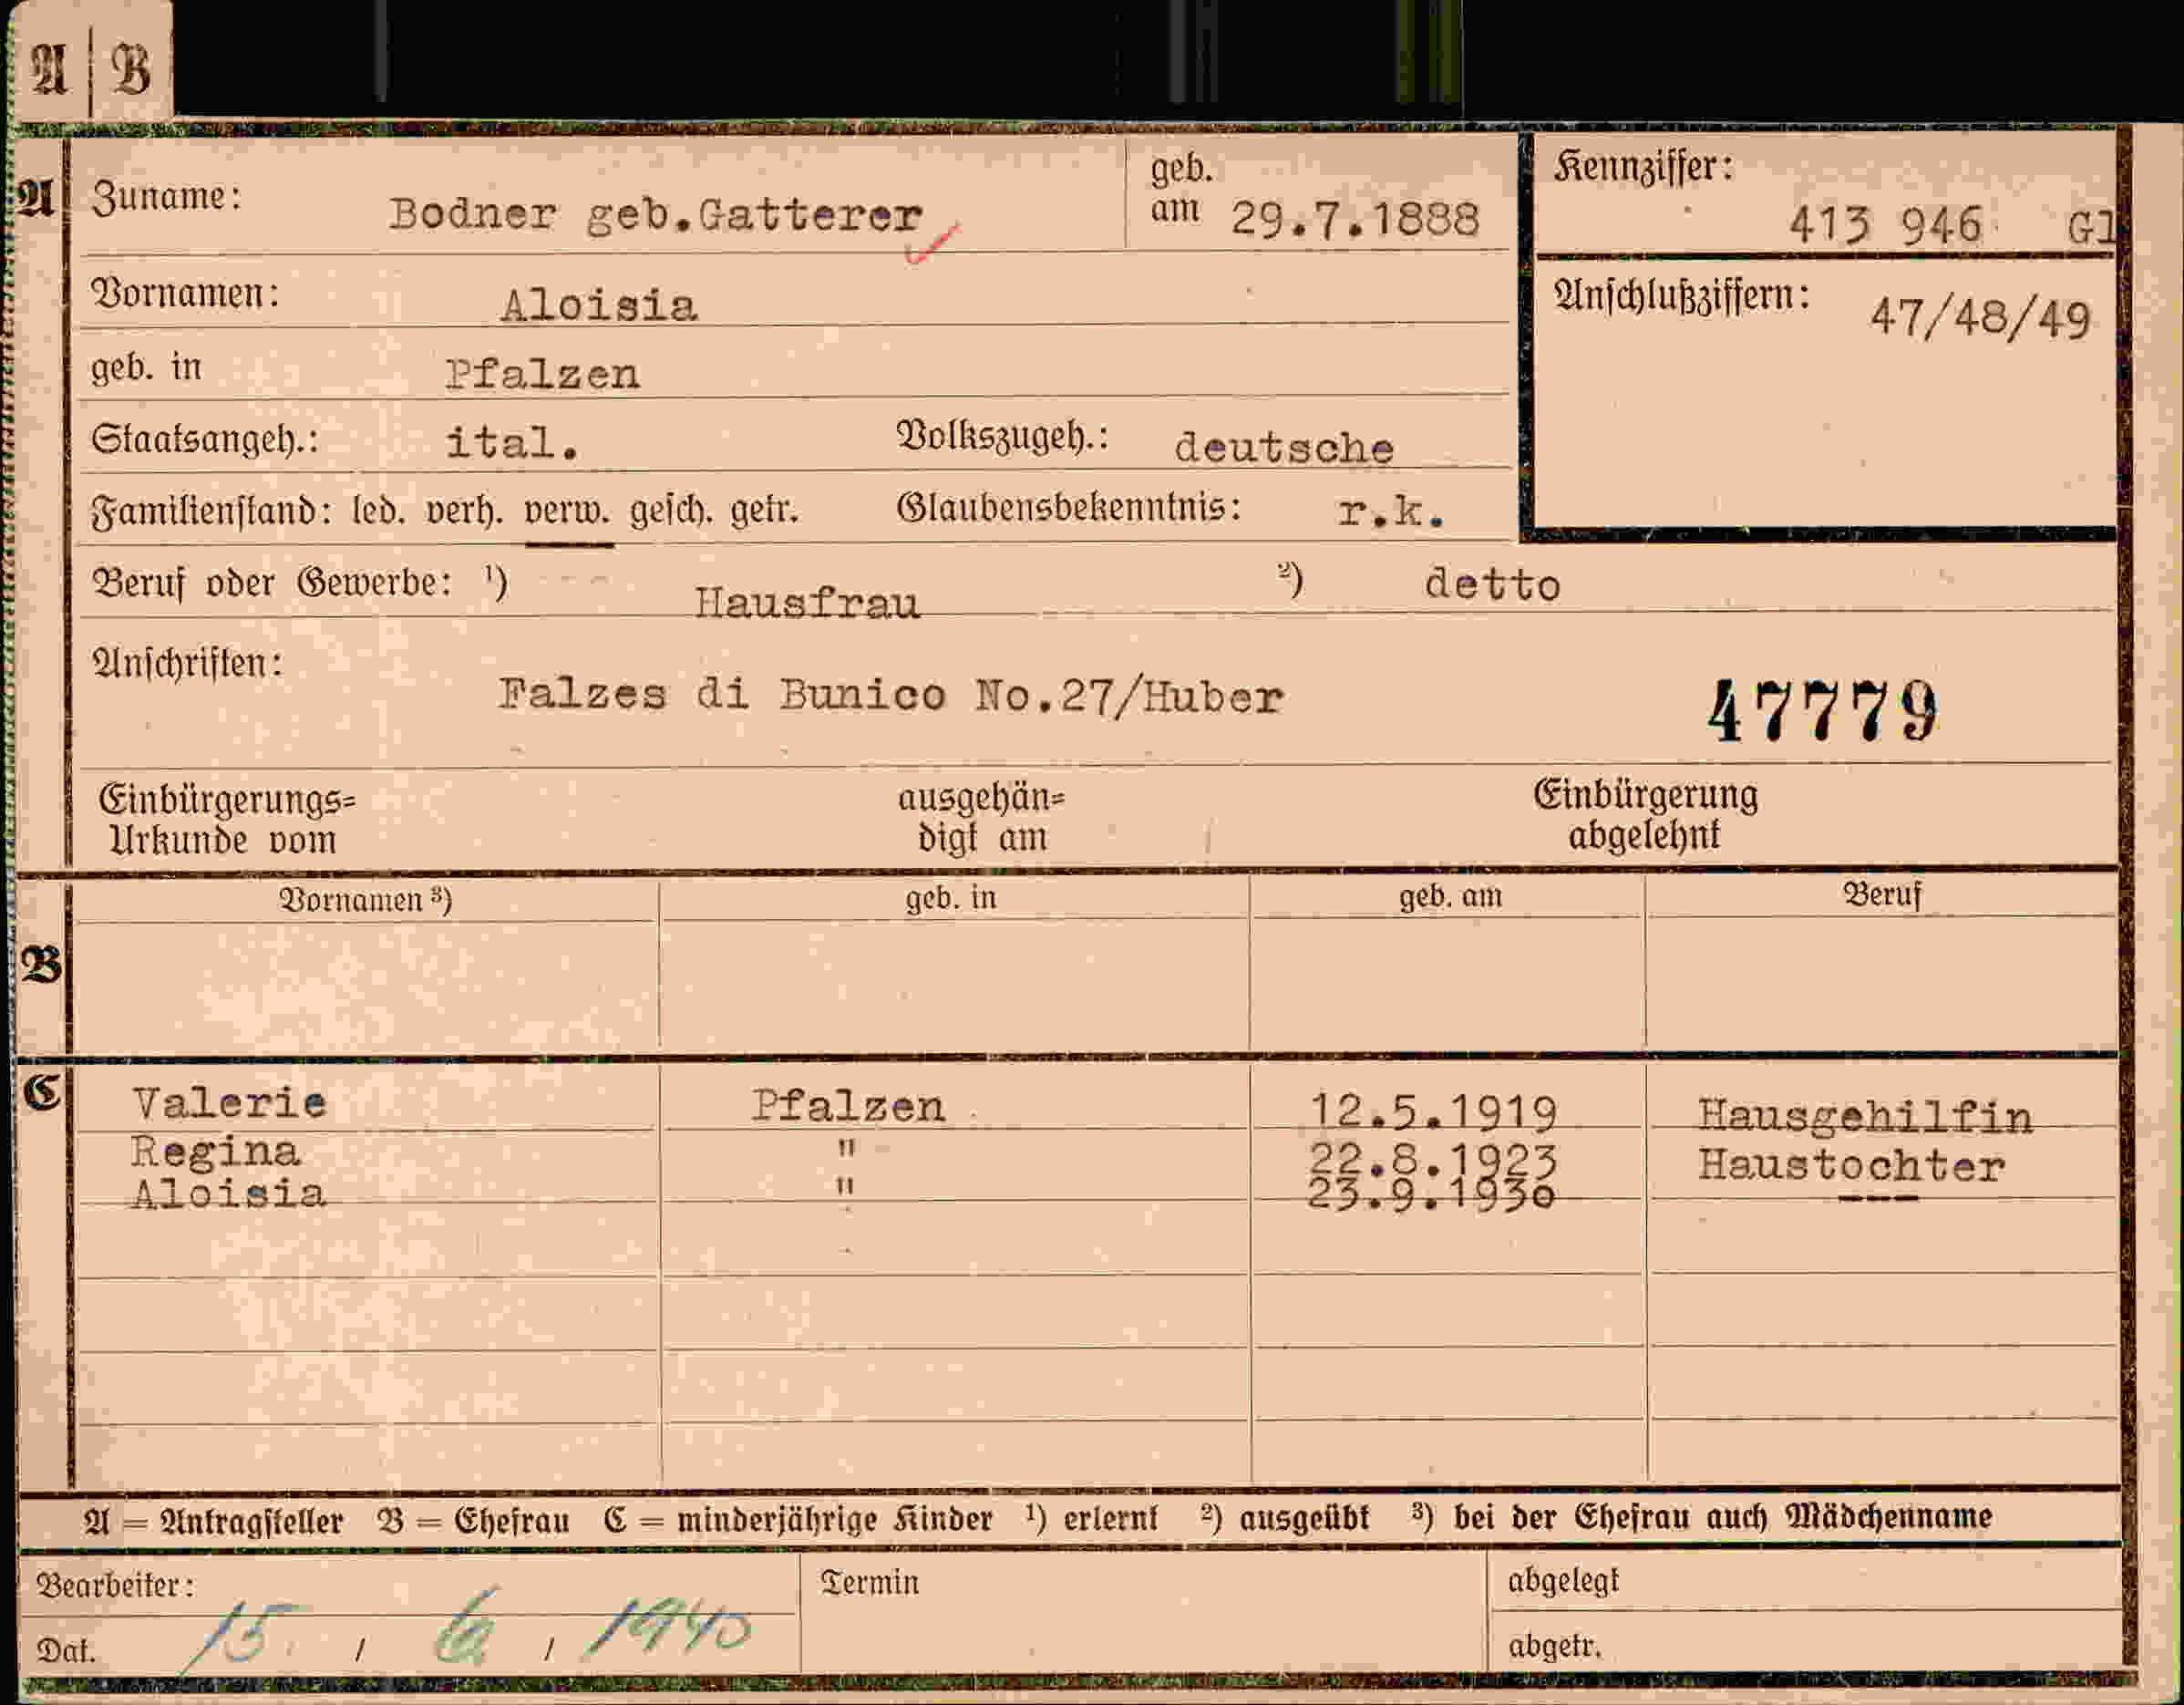 A | B
A Zuname: Bodner geb.Gatterer geb. am 29.7.1888 Kennziffer: 413 946 Gl
Vornamen: Aloisia Anschlußziffern: 47/48/49
geb. in Pfalzen
Staatsangeh.: ital. Volkszugeh.: deutsche
Familienstand: led. verh. verw. gesch. getr. Glaubensbekenntnis: r.k.
Beruf oder Gewerbe: ¹) Hausfrau ²) detto
Anschriften: Falzes di Bunico No.27/Huber 47779
Einbürgerungs= ausgehän= Einbürgerung
Urkunde vom digt am abgelehnt
Vornamen ³) geb. in geb. am Beruf
B
C Valerie Pfalzen 12.5.1919 Hausgehilfin
Regina " 22.8.1923 Haustochter
Aloisia " 23.9.1930 ---
A = Antragsteller B = Ehefrau C = minderjährige Kinder ¹) erlernt ²) ausgeübt ³) bei der Ehefrau auch Mädchenname
Bearbeiter: Termin abgelegt
Dat. 15. / 6 / 1940 abgetr.